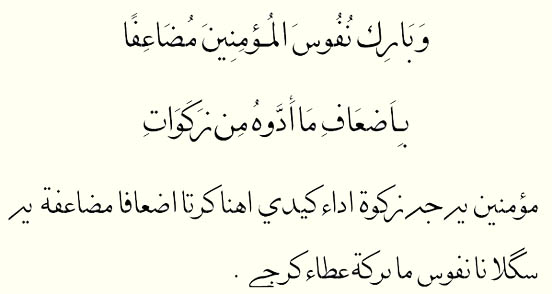 وَبَارِك نُفُوسَ الْمُؤمِنِينَ مُضَاعِفًا
بِاَضعَافِ مَا أَدَّوهُ مِن زَكَوَاتِ
مؤمنين يہ جہ زكوة اداء كيدي اهنا كرتا اضعافا مضاعفة يہ
سگلا نا نفوس ما بركة عطاء كرجے .